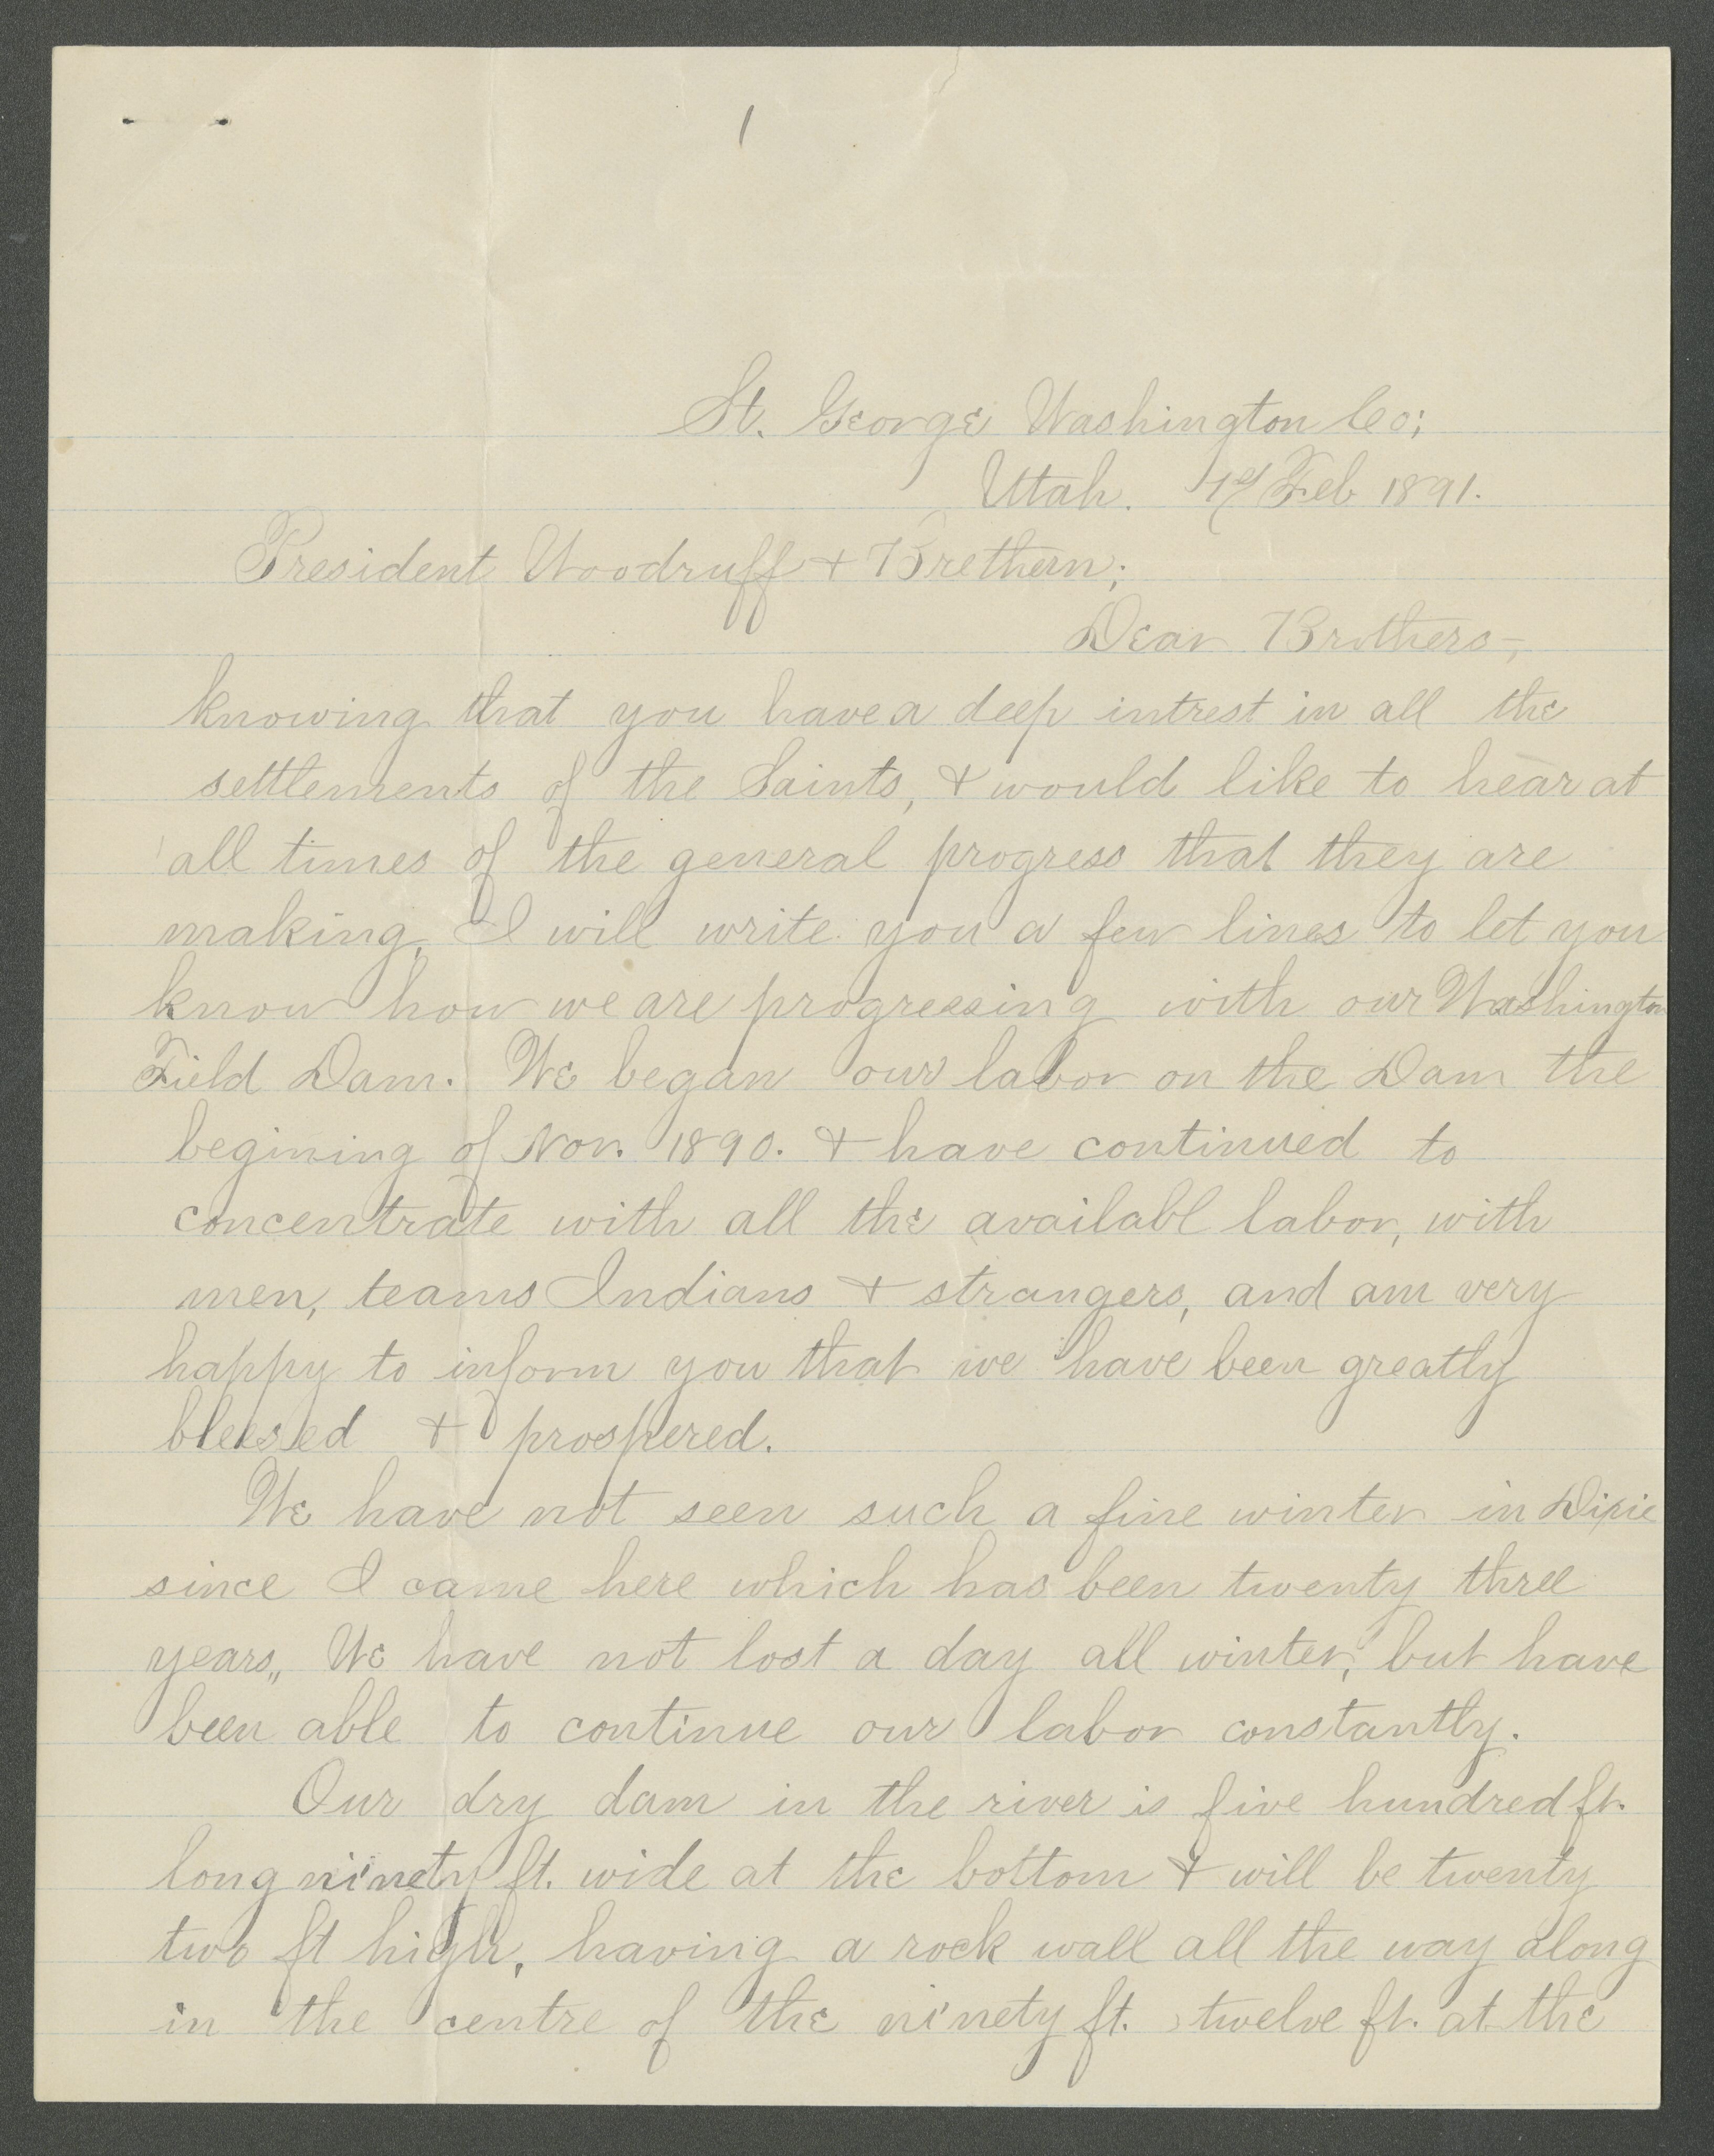 1
St. George Washington Co;
Utah. Feb 1891.
President Woodruff & Brethern;
Dear Brothers,
knowing that you have a deep intrest in all the
settlements of the Saints, & would like to hear at
all times of the general progress that they are
making, I will write you a few lines to let you
know how we are progressing with our Washington
Field Dam. We began our labor on the Dam the
begining of Nov. 1890. & have continued to
concentrate with all the availabl labor, with
men, teams Indians & strangers, and am very
happy to inform you that we have been greatly
blessed & prospered.
We have not seen such a fine winter in Dixie
since I came here which has been twenty three
years,, We have not lost a day all winter, but have
been able to continue our labor constantly.
Our dry dam in the river is five hundred ft.
long ninety ft. wide at the bottom & will be twenty
two ft high, having a rock wall all the way along
in the centre of the ninety ft. twelve ft. at the